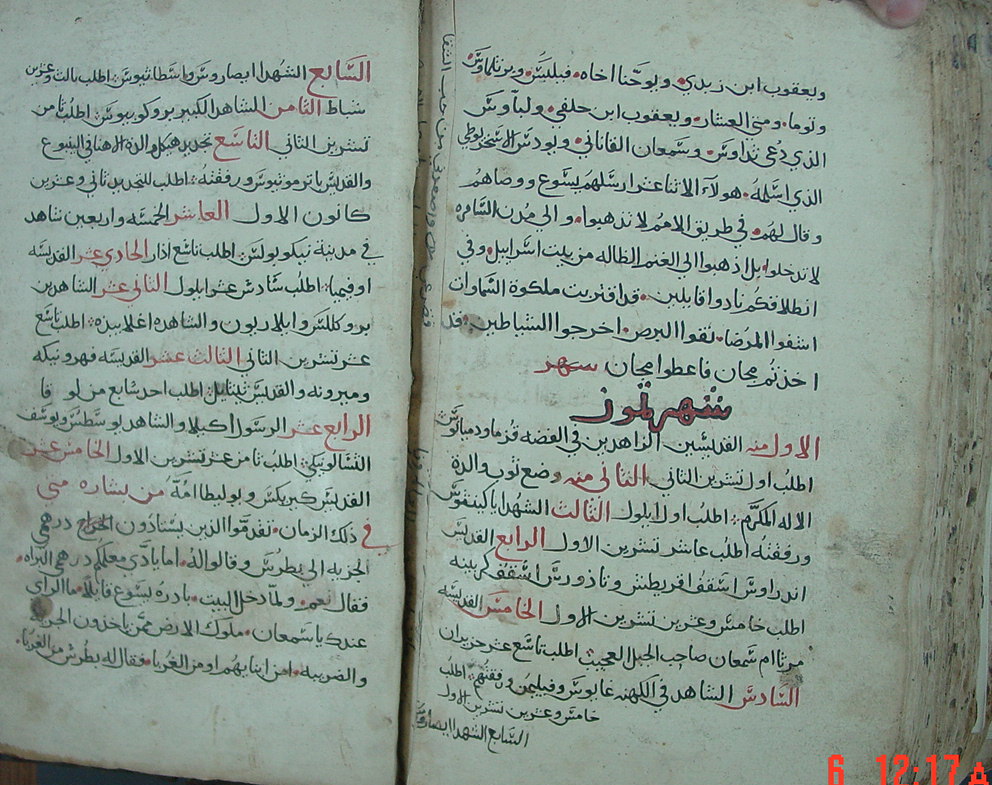 ويعقوب ابن زبدي ويوحنا اخاه فيلبس وبرتلماوس
وتوما ومتى العشار ويعقوب ابن حلفي ولباوس
الذي دُعي تداوس وسمعان القاناني ويودس الاسخريوطي
الذي اسلمه هولاء الاثنا عشر ارسلهم يسوع ووصاهم
وقال لهم في طريق الامم لا تذهبوا والى مدن السامره
لا تدخلوا بل اذهبوا الى الغنم الظاله من بيت اسراييل وفي
انطلاقكم نادوا قايلين قد اقتربت ملكوة السماوات
اشفوا المرضا نقوا البرص اخرجوا الشياطين قد
اخذتم مجان فاعطوا مجان شهر
شهر تموز
الاول منه القديسين الزاهدين في الفضه قزما ودميانوس
اطلب اول تشرين التاني الثاني منه وضع ثوب والدة
الاله المكرم اطلب اول ايلول الثالث الشهدا ياكينثوس
ورفقته اطلب عاشر تشرين الاول الرابع القديس
اندراوس اسقف اقريطش وتاذورس اسقف كرينيه
اطلب خامس وعشرين تشرين الاول الخامس القديسه
مرتا ام سمعان صاحب الجبل العجيب اطلب تاسع عشر حزيران
السادس الشاهد في الكهنه غايوس وفيليمن ورفقتهم اطلب
خامس وعشرين تشرين الاول
السابع الشهدا ايصاروس
السابع الشهدا ايصاروس واسطاتيوس اطلب تالت وعشرين
شباط الثامن الشاهد الكبير بروكوبيوس اطلب ثامن
تشرين التاني التاسع تجديد هيكل والدة الاله في الينبوع
والقديس باترموتيوس ورفقته اطلب للتجديد تاني وعشرين
كانون الاول العاشر الخمسه واربعين شاهد
في مدينة نيكوبوليس اطلب تاسع اذار الحادي عشر القديسه
اوفيميا اطلب سادس عشر ايلول الثاني عشر الشاهدين
بروكلس وايلاريون والشاهده اطلب تاسع
عشر تشرين التاني الثالث عشر القديسه
والقديس اطلب احد سابع من لوقا
الرابع عشر الرسول اكيلا والشاهد يوسطس ويوسف
التسالونيكي اطلب تامن عشر تشرين الاول الخامس عشر
القديس كيريكس ويوليطا امه من بشاره متى
في ذلك الزمان تقدموا الذين يستادون الخراج درهمي
الجزيه الى بطرس وقالوا له اما يادي معلمكم درهمي الجزاه
فقال نعم ولما دخل البيت بادره يسوع قايلا ما الراي
عندك يا سمعان ملوك الارض ممن ياخذون الجزيه
والضريبه امن ابنايهم او من الغربا فقال له بطرس من الغربا
6 12:17